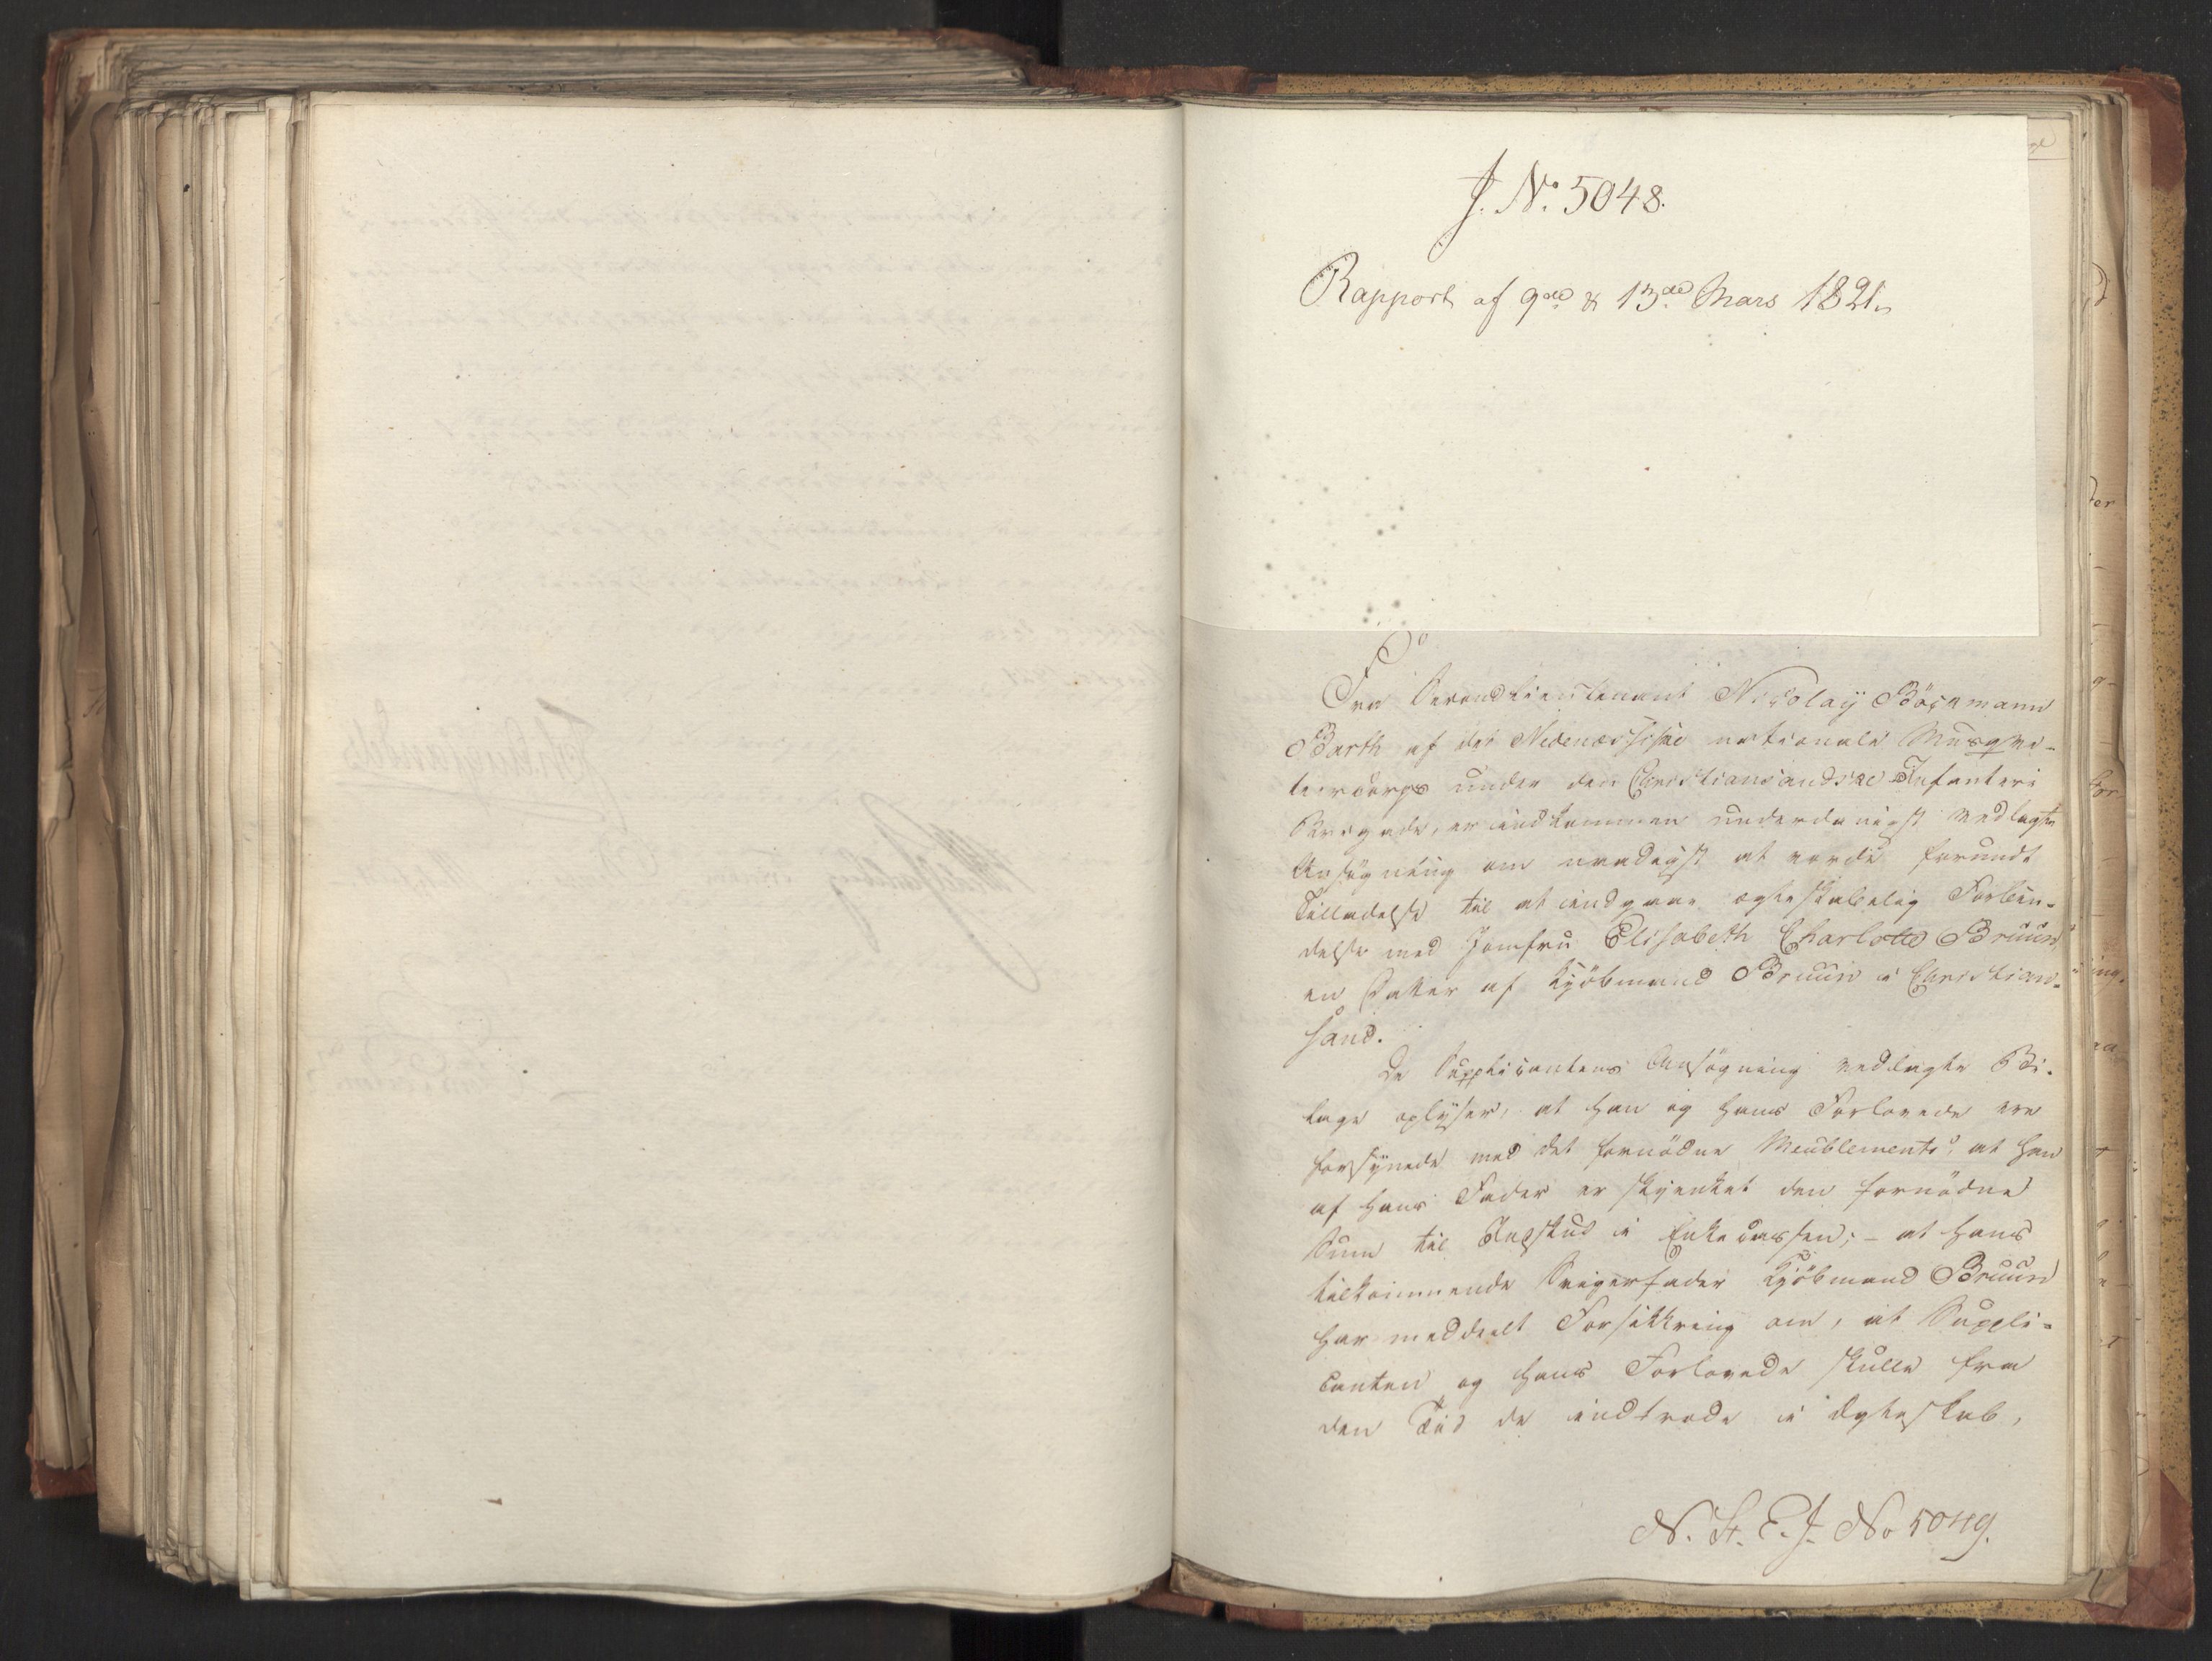 J. No. 5048.
Rapport af 9de & 13de Mars 1821.
Fra Secondlieutenant Nicolaÿ Böckmann
Barth af det Nedenæsiske nationale Musqve-
teercorps under den Christiansandske Infanteri
Brigade, er indkommen underdanigst vedlagte
Ansøgning om naadigst at vorde forundt
Tilladelse til at indgaae ægteskabelig Forbin-
delse med Jomfru Elisabeth Charlotte Bruun,
en Datter af Kjöbmand Bruun i Christian-
sand.
De Supplicantens Ansøgning vedlagte Bi-
lage oplÿser, at han og hans Forlovede ere
forsÿnede med det fornödne Meublement; at han
af hans Fader er skjenket den fornödne
Sum til Indskud i Enkecassen; – at hans
tilkommende Svigerfader Kjöbmand Bruun
har meddeelt Forsikkring om, at Suppli-
canten og hans Forlovede skulle fra
den Tid de indtræde i Ægteskab,
N. St. E. J. No 5049.